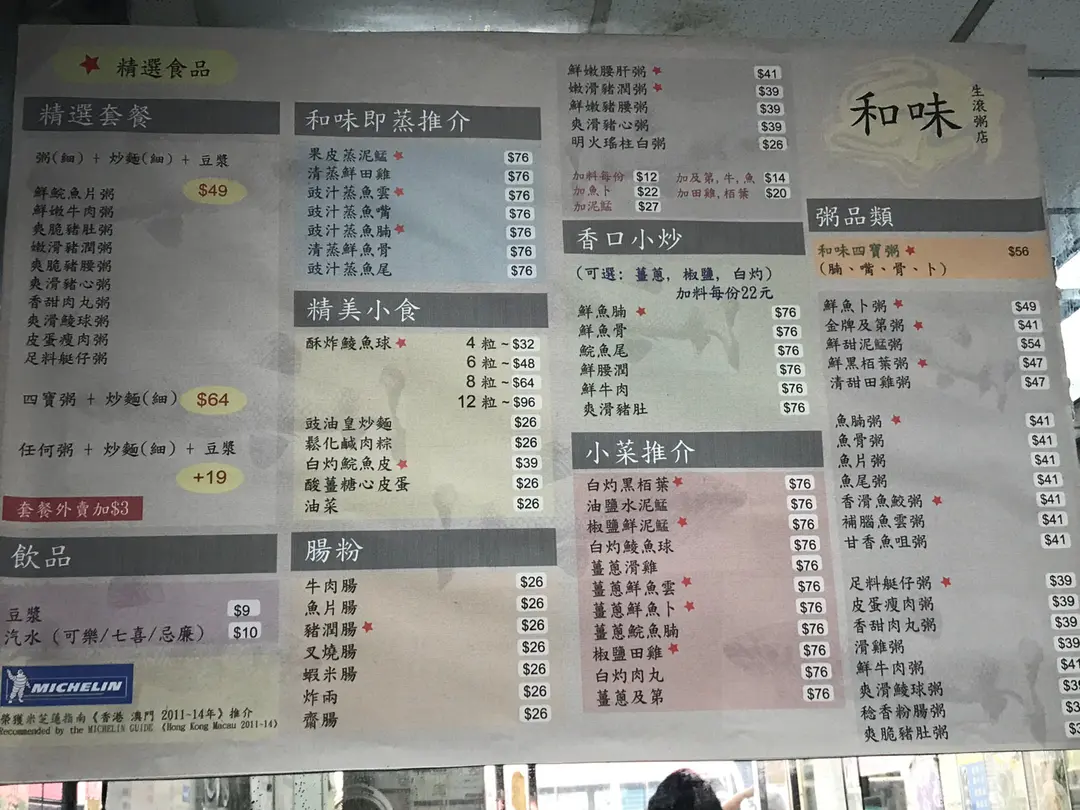 精選食品
精選套餐
粥(細) + 炒麵(細) + 豆漿
$49
鮮鯇魚片粥
鮮嫩牛肉粥
爽脆豬肚粥
嫩滑豬潤粥
爽脆豬腰粥
爽滑豬心粥
香甜肉丸粥
爽滑鯪球粥
皮蛋瘦肉粥
足料艇仔粥
四寶粥 + 炒麵(細) $64
任何粥 + 炒麵(細) + 豆漿
+19
套餐外賣加$3
飲品
豆漿 $9
汽水 (可樂/七喜/忌廉) $10
MICHELIN
榮獲米芝蓮指南《香港 澳門 2011-14年》推介
Recommended by the MICHELIN GUIDE 《Hong Kong Macau 2011-14》
和味即蒸推介
果皮蒸泥鯭 $76
清蒸鮮田雞 $76
豉汁蒸魚雲 $76
豉汁蒸魚嘴 $76
豉汁蒸魚腩 $76
清蒸鮮魚骨 $76
豉汁蒸魚尾 $76
精美小食
酥炸鯪魚球 4 粒 ~ $32
6 粒 ~ $48
8 粒 ~ $64
12 粒 ~ $96
豉油皇炒麵 $26
鬆化鹹肉粽 $26
白灼鯇魚皮 $39
酸薑糖心皮蛋 $26
油菜 $26
腸粉
牛肉腸 $26
魚片腸 $26
豬潤腸 $26
叉燒腸 $26
蝦米腸 $26
炸兩 $26
齋腸 $26
鮮嫩腰肝粥 $41
嫩滑豬潤粥 $39
鮮嫩豬腰粥 $39
爽滑豬心粥 $39
明火瑤柱白粥 $26
加料每份 $12 加及第, 牛, 魚 $14
加魚卜 $22 加田雞, 栢葉 $20
加泥鯭 $27
香口小炒
(可選: 薑蔥, 椒鹽, 白灼)
加料每份22元
鮮魚腩 $76
鮮魚骨 $76
鯇魚尾 $76
鮮腰潤 $76
鮮牛肉 $76
爽滑豬肚 $76
小菜推介
白灼黑栢葉 $76
油鹽水泥鯭 $76
椒鹽鮮泥鯭 $76
白灼鯪魚球 $76
薑蔥滑雞 $76
薑蔥鮮魚雲 $76
薑蔥鮮魚卜 $76
薑蔥鯇魚腩 $76
椒鹽田雞 $76
白灼肉丸 $76
薑蔥及第 $76
和味
生滾粥店
粥品類
和味四寶粥 $56
(腩、嘴、骨、卜)
鮮魚卜粥 $49
金牌及第粥 $41
鮮甜泥鯭粥 $54
鮮黑栢葉粥 $47
清甜田雞粥 $47
魚腩粥 $41
魚骨粥 $41
魚片粥 $41
魚尾粥 $41
香滑魚鮫粥 $41
補腦魚雲粥 $41
甘香魚咀粥 $41
足料艇仔粥 $39
皮蛋瘦肉粥 $39
香甜肉丸粥 $39
滑雞粥 $39
鮮牛肉粥 $41
爽滑鯪球粥
稔香粉腸粥
爽脆豬肚粥